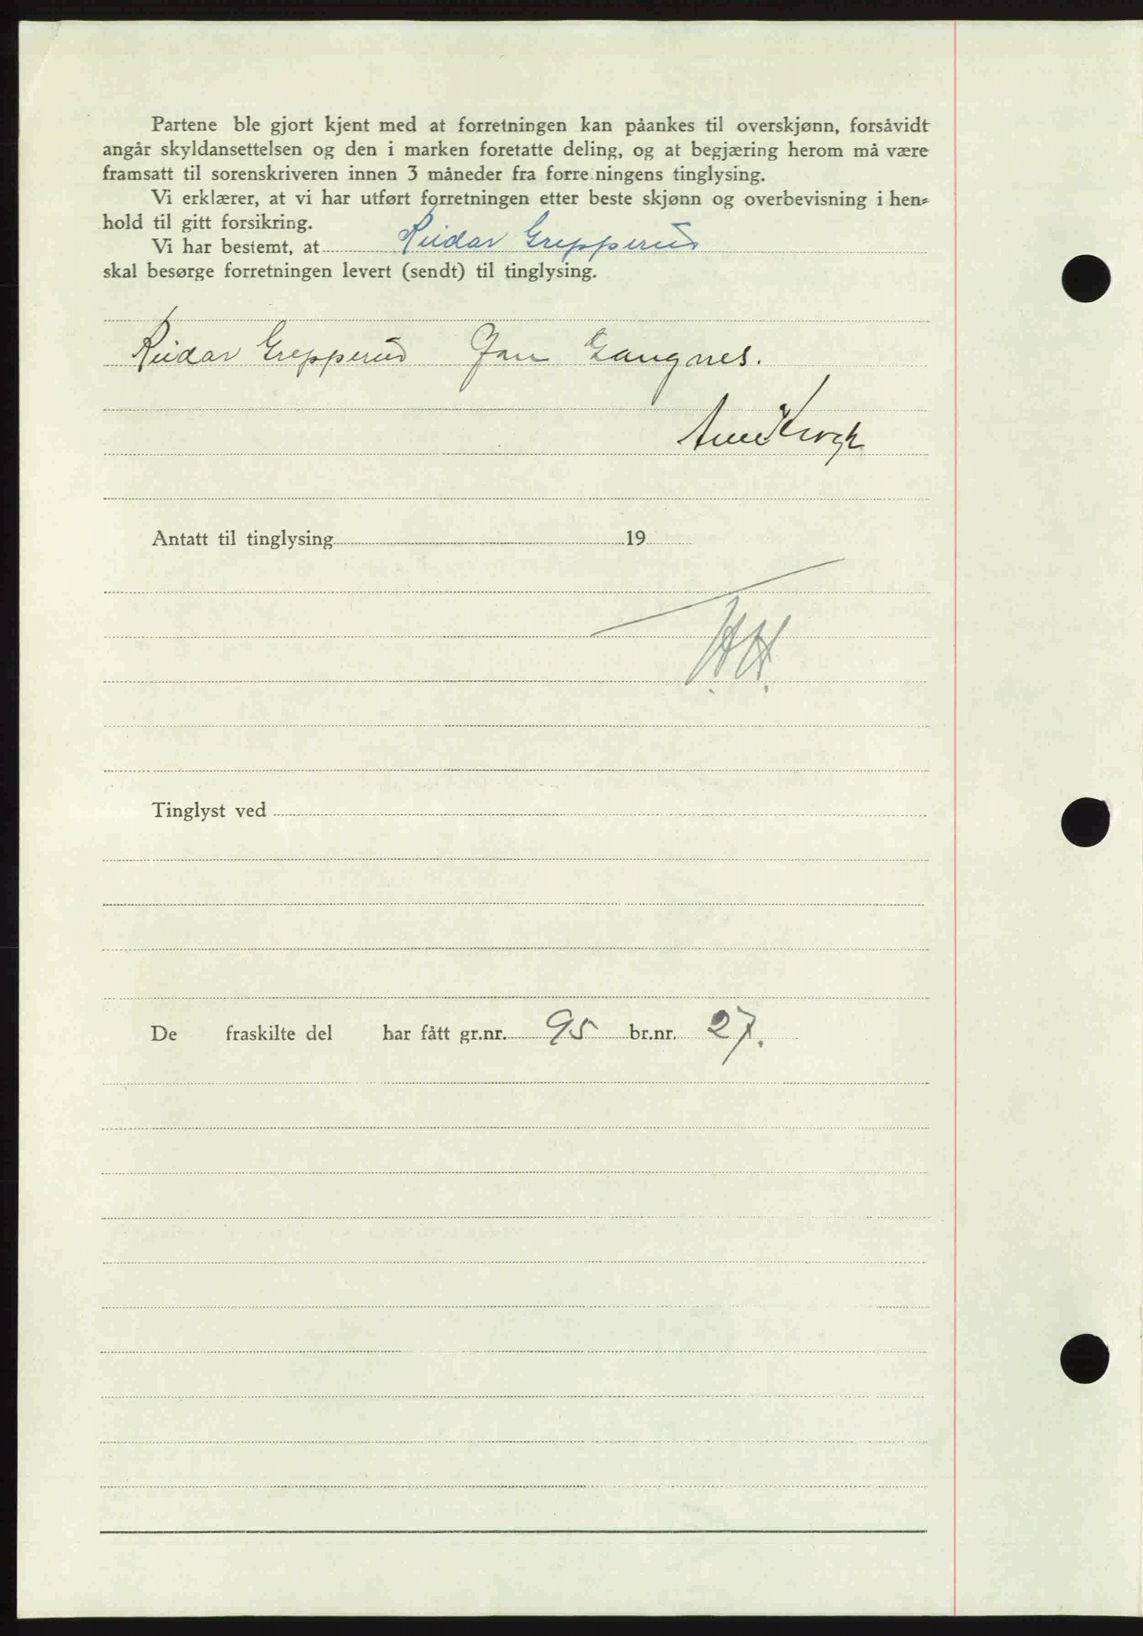 Partene ble gjort kjent med at forretningen kan påankes til overskjønn, forsåvidt
angår skyldansettelsen og den i marken foretatte deling, og at begjæring herom må være
framsatt til sorenskriveren innen 3 måneder fra forre ningens tinglysing.
Vi erklærer, at vi har utført forretningen etter beste skjønn og overbevisning i hen-
hold til gitt forsikring.
Vi har bestemt, at Reidar Grepperud
skal besørge forretningen levert (sendt) til tinglysing.
Reidar Grepperud Jan Gangnes.
Krogh
Antatt til tinglysing 19
H.H.
Tinglyst ved
De fraskilte del har fått gr.nr. 95 br.nr. 27.